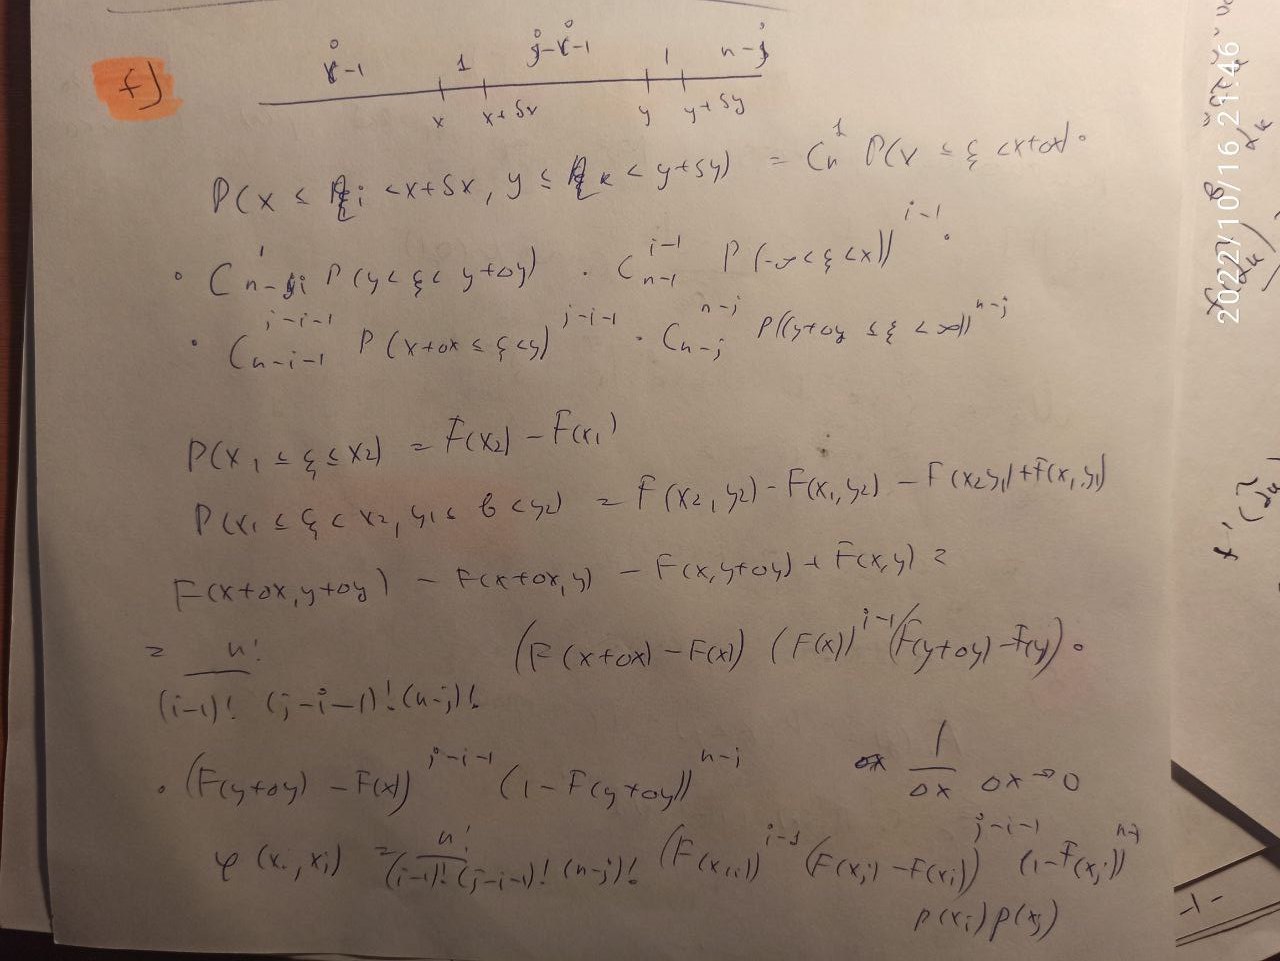 f)
i-1 1 j-i-1 1 n-j
x x+δx y y+δy
P(x ≤ ξi < x+δx, y ≤ ξk < y+δy) = C_n^1 P(x ≤ ξ < x+Δx) ·
· C_{n-i}^1 P(y < ξ < y+Δy) · C_{n-1}^{i-1} P(-∞ < ξ < x))^{i-1} ·
· C_{n-i-1}^{j-i-1} P(x+Δx ≤ ξ < y)^{j-i-1} · C_{n-j}^{n-j} P((y+Δy ≤ ξ < ∞))^{n-j}
P(x1 ≤ ξ ≤ x2) = F(x2) - F(x1)
P(x1 ≤ ξ < x2, y1 ≤ θ < y2) = F(x2, y2) - F(x1, y2) - F(x2 y1) + F(x1, y1)
F(x+Δx, y+Δy) - F(x+Δx, y) - F(x, y+Δy) + F(x, y) =
= n! / (i-1)! (j-i-1)! (n-j)! (F(x+Δx) - F(x)) (F(x))^{i-1} (F(y+Δy) - F(y)) ·
· (F(y+Δy) - F(x))^{j-i-1} (1 - F(y+Δy))^{n-j} 1/Δx Δx→0
φ(xi, xj) = n! / (i-1)! (j-i-1)! (n-j)! (F(x(i))^{i-1} (F(xj) - F(xi))^{j-i-1} (1-F(xj))^{n-j}
p(xi) p(xj)
-1-
2022/10/16 21:46